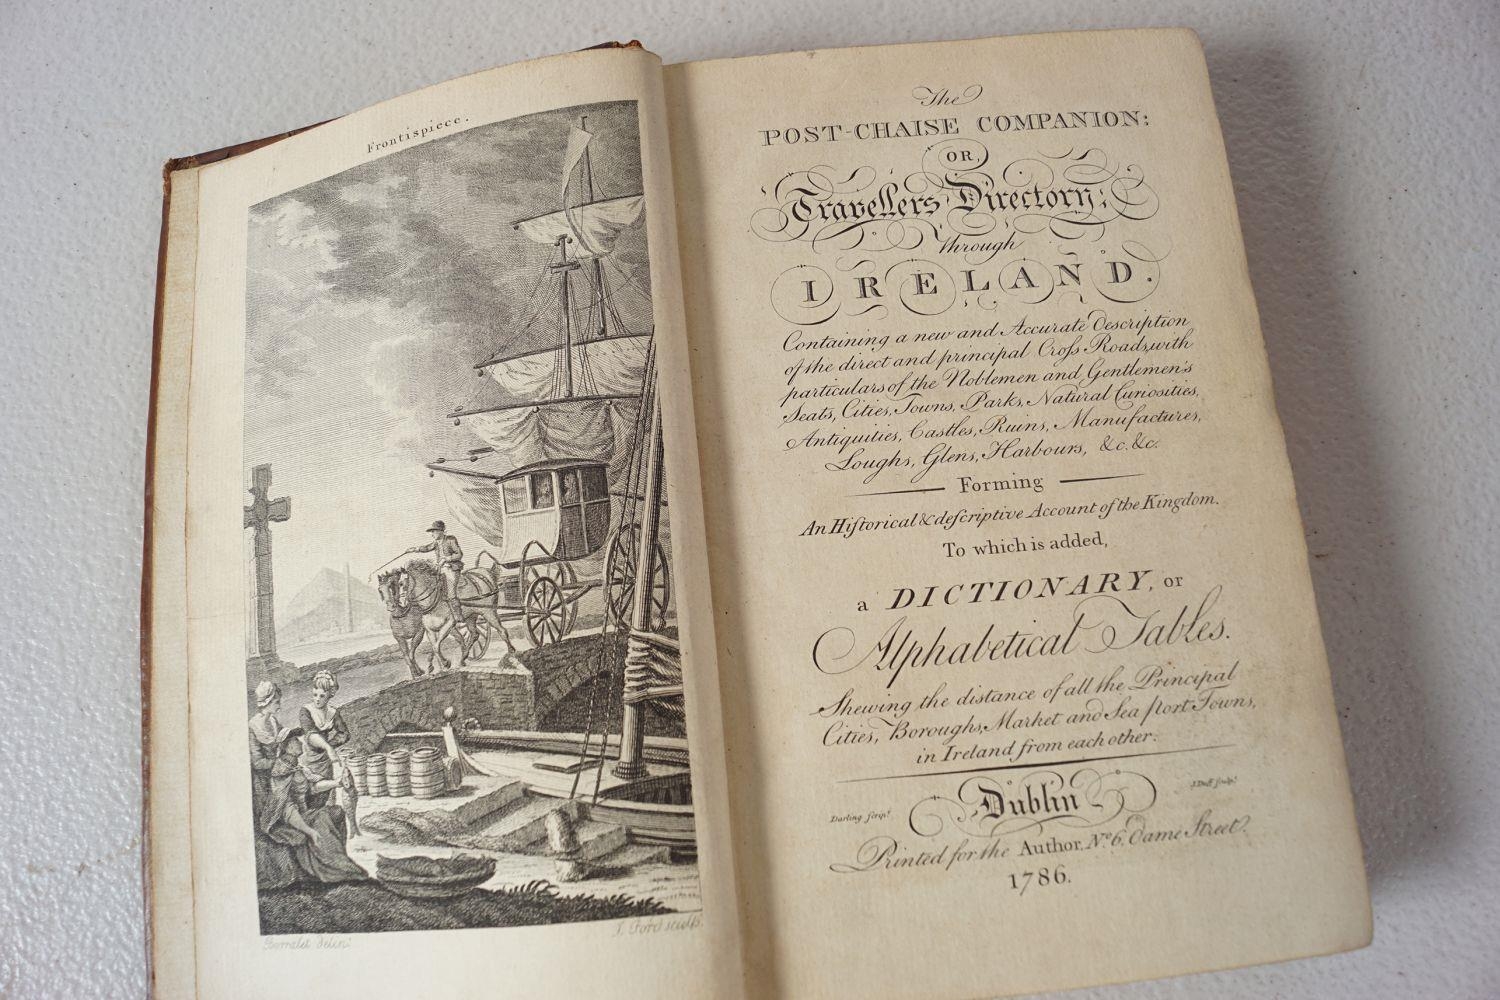 Frontispiece.
Barralet delin.t
J. Ford sculp.
The
POST-CHAISE COMPANION:
OR,
Travellers Directory;
through
IRELAND.
Containing a new and Accurate Description
of the direct and principal Croſs Roads, with
particulars of the Noblemen and Gentlemen's
Seats, Cities, Towns, Parks, Natural Curiosities,
Antiquities, Castles, Ruins, Manufactures,
Loughs, Glens, Harbours, &c. &c.
Forming
An Hiſtorical & deſcriptive Account of the Kingdom.
To which is added,
a DICTIONARY, or
Alphabetical Tables.
Shewing the distance of all the Principal
Cities, Boroughs, Market and Sea port Towns,
in Ireland from each other.
Darling ſcrip.t
J. Duff ſculp.t
Dublin
Printed for the Author, No. 6, Dame Street.
1786.